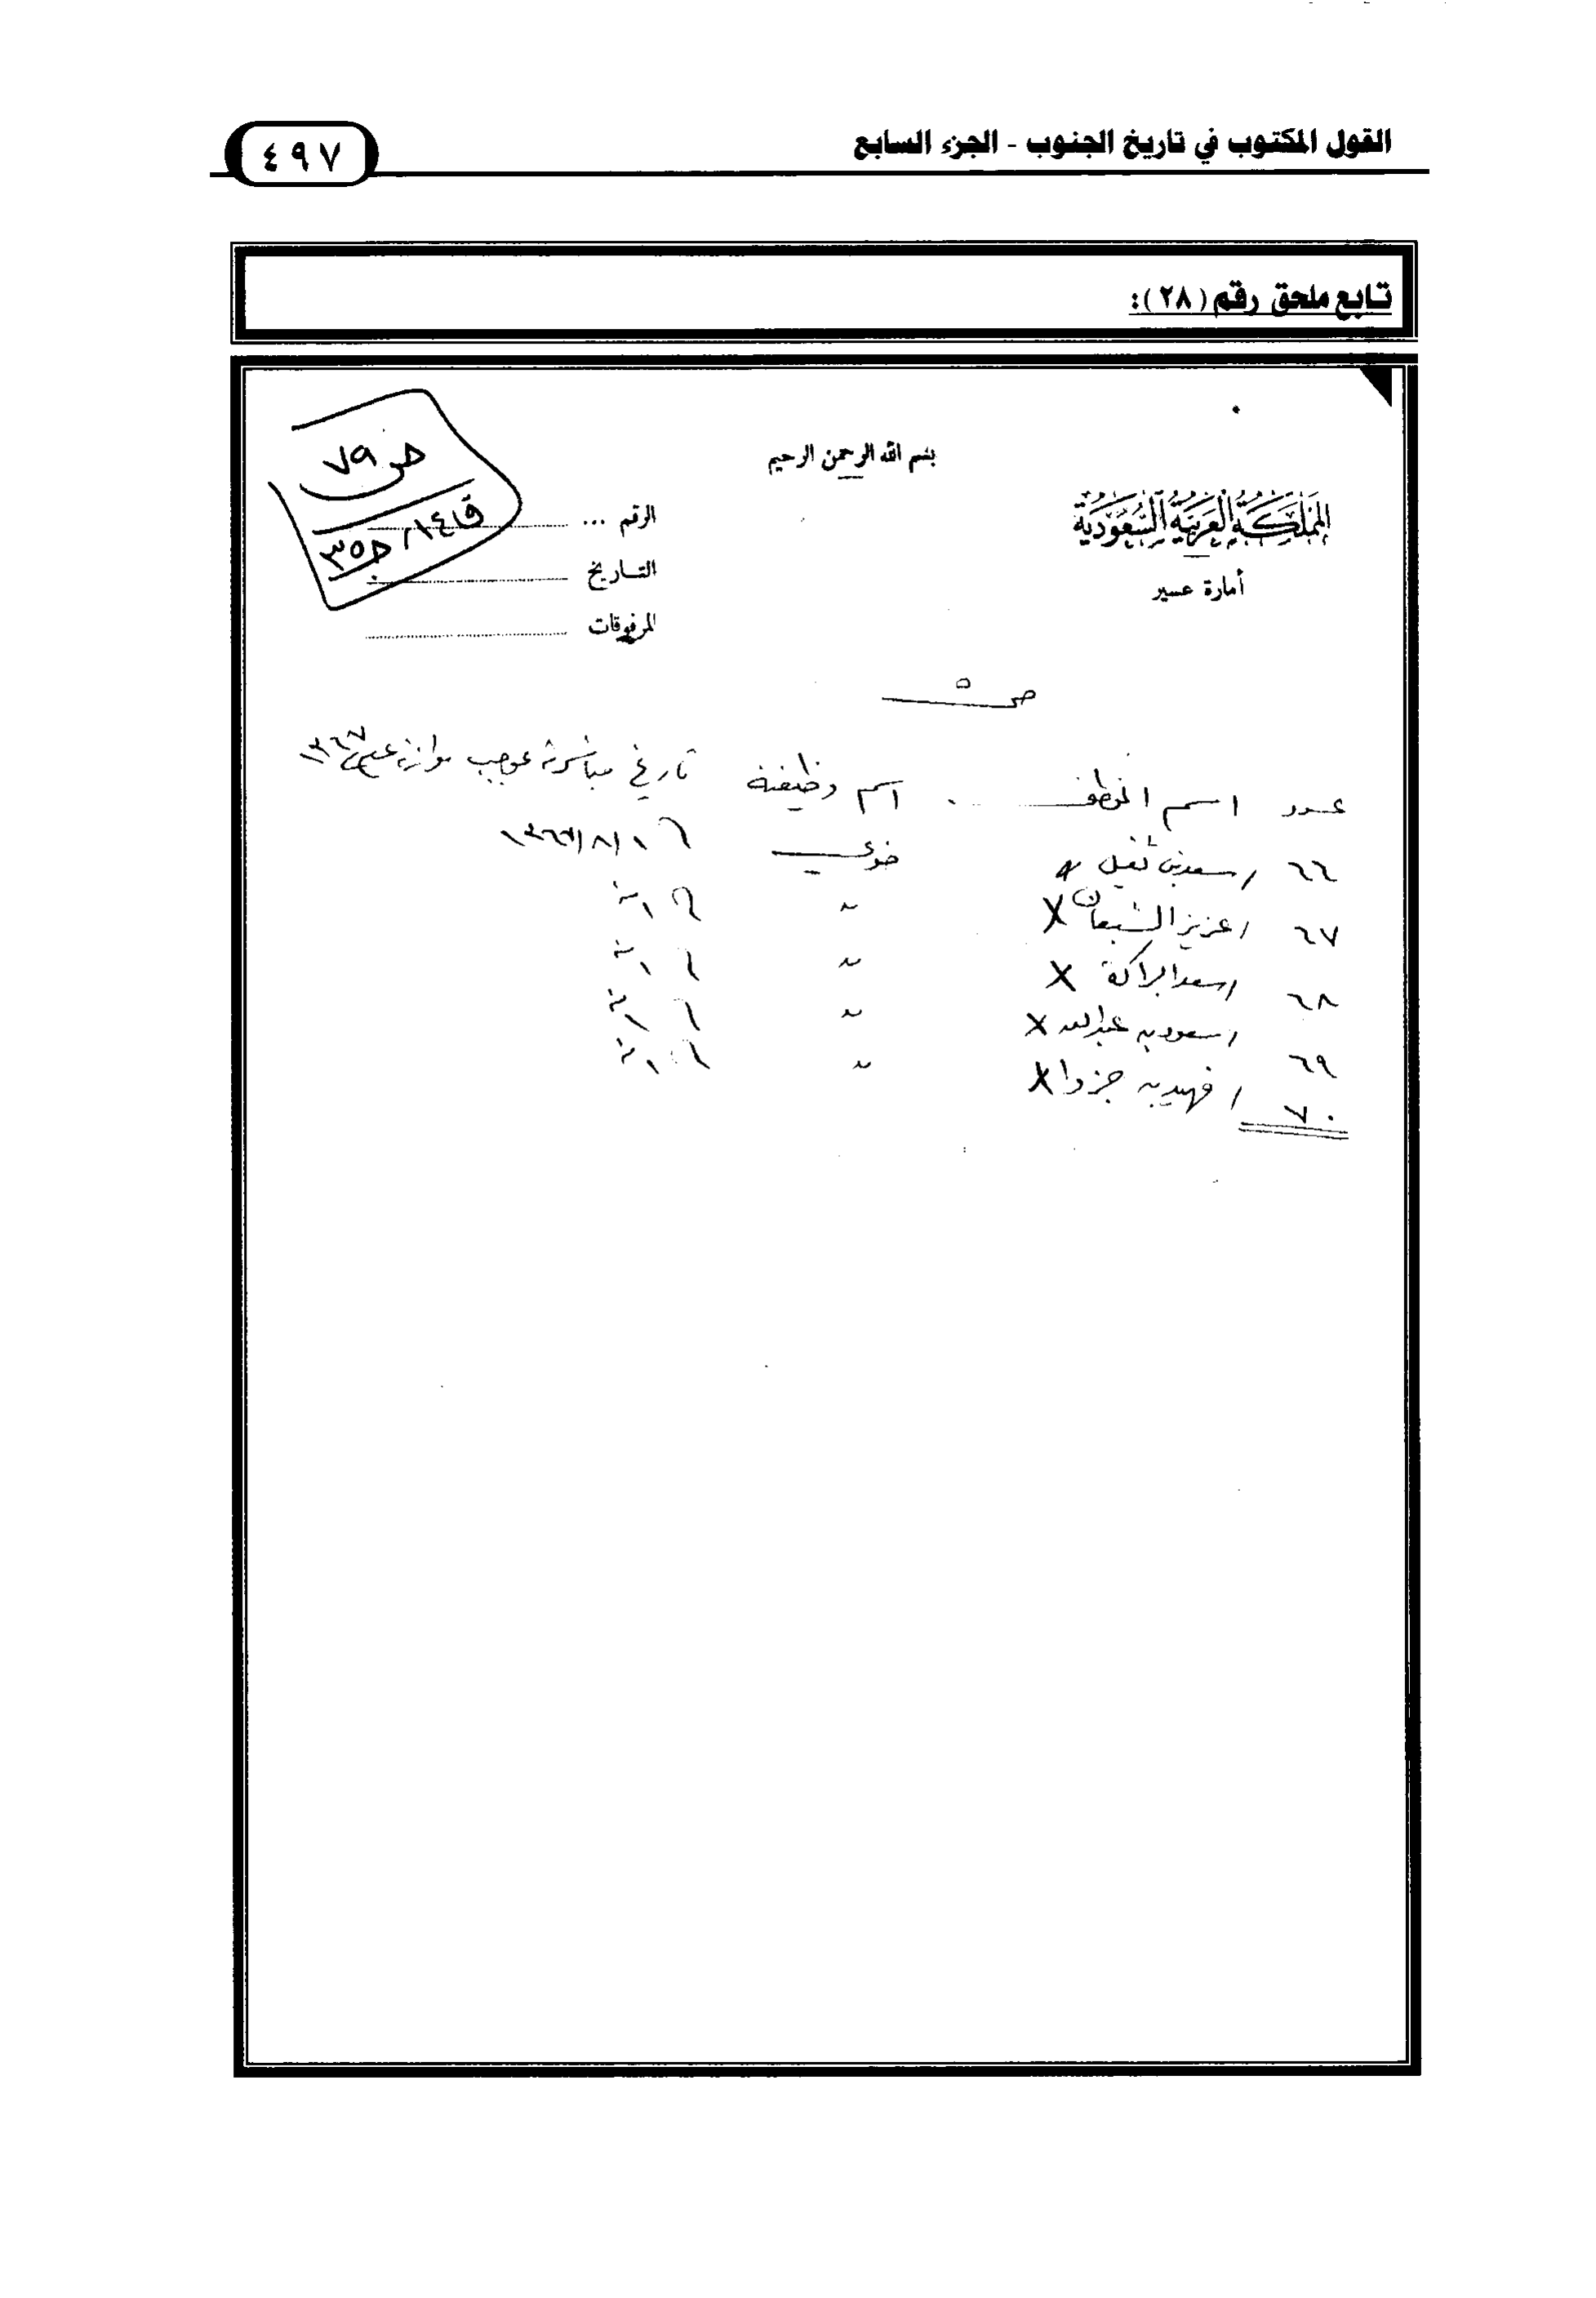 القول المكتوب في تاريخ الجنوب - الجزء السابع
٤٩٧
تابع ملحق رقم (٢٨):
ص ٧٩
ق١٤/ ج٣٥
بسم الله الرحمن الرحيم
المملكة العربية السعودية
أمارة عسير
الرقم ...
التاريخ
المرفوقات
ص ٥
عدد اسم الموظف اسم وظيفته تاريخ مباشرته بموجب موازنة ١٣٦٧
٦٦ / سعد بن ثقيل خوي ١/٨/١٣٦٧
٦٧ / عزيز الشبعان X " " " ١
٦٨ / سعد البراكة X " " ١
٦٩ / سعود بن عبدالله X " " ١
٧٠ / فهيد بن X " " ١